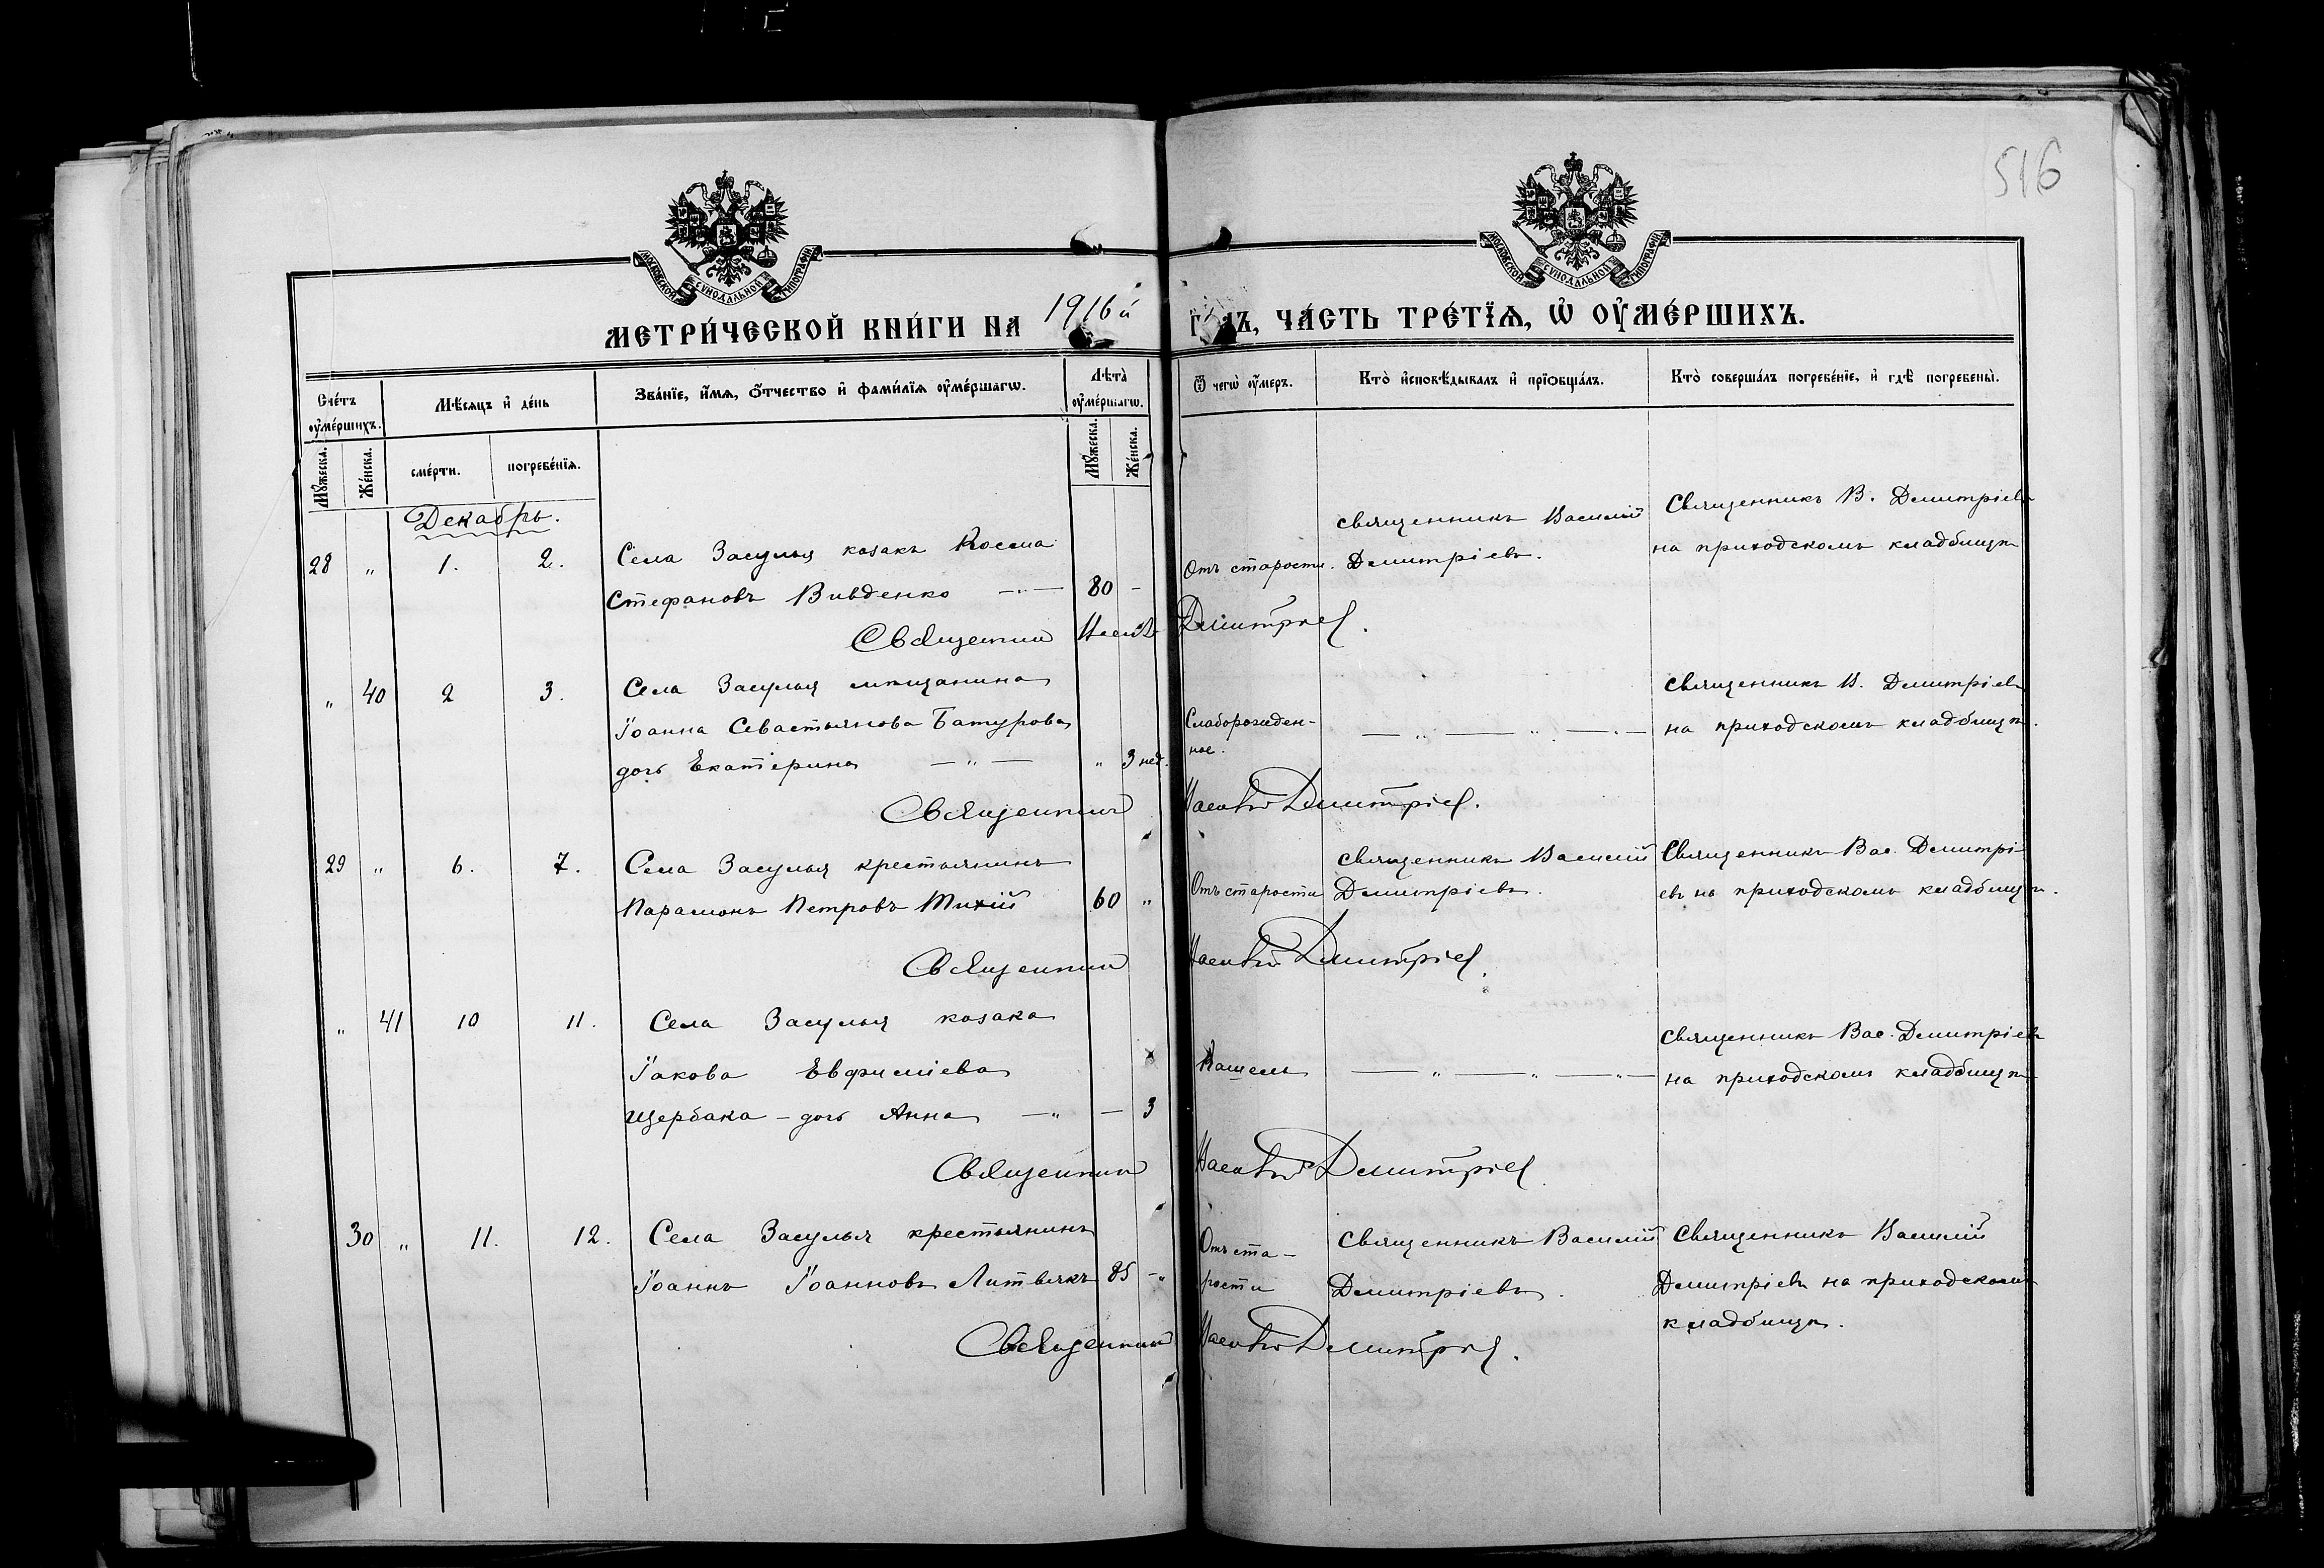 516
МОСКОВСКОЙ СѴНОДАЛЬНОЙ ТИПОГРАФІИ
МОСКОВСКОЙ СѴНОДАЛЬНОЙ ТИПОГРАФІИ
МЕТРИ́ЧЕСКОЙ КНИ́ГИ НА 1916й ГОДЪ, ЧА́СТЬ ТРЕ́ТІѦ, Ѡ҆ ОУ҆МЕ́РШИХЪ.
Сче́тъ оу҆ме́ршихъ.
Мѣ́сѧцъ и҆ де́нь
Зва́нїе, и҆́мѧ, ѻ҆́тчество и҆ фами́лїѧ оу҆ме́ршагѡ.
Лѣта̀ оу҆ме́ршагѡ.
Ѿ чегѡ̀ оу҆́меръ.
Кто̀ и҆сповѣ́дывалъ и҆ прїѻбща́лъ.
Кто̀ соверша́лъ погребе́нїе, и҆ гдѣ̀ погребены̀.
Мꙋ́жеска. Же́нска. сме́рти. погребе́нїѧ. Мꙋ́жеска. Же́нска.
Декабрь.
28 „ 1. 2. Села Засулья козакъ Косма
Стефановъ Вивденко — „ — 80 —
Отъ старости.
священникъ Василій
Димитріевъ.
Священникъ В. Димитріевъ
на приходскомъ кладбищѣ
Священникъ Василій Димитріевъ.
„ 40 2 3. Села Засулья мѣщанина
Іоанна Севастьянова Батурова
дочь Екатерина — „ — „ 3 нед.
Слаборожден-
ное.
— „ — „ — „ —
священникъ В. Димитріевъ
на приходскомъ кладбищѣ.
Священникъ Василій Димитріевъ.
29 „ 6. 7. Села Засулья крестьянинъ
Парамонъ Петровъ Тихій 60 „
Отъ старости
священникъ Василій
Димитріевъ.
Священникъ Вас. Димитрі-
евъ на приходскомъ кладбищѣ.
Священникъ Василій Димитріевъ.
„ 41 10 11. Села Засулья козака
Іакова Евфиміева
Щербака – дочь Анна — „ — 3
Кашель
— „ — „ — „ —
священникъ Вас. Димитріевъ
на приходскомъ кладбищѣ
Священникъ Василій Димитріевъ.
30 „ 11. 12. Села Засулья крестьянинъ
Іоаннъ Іоанновъ Литвякъ 85 – „
Отъ ста-
рости
Священникъ Василій
Димитріевъ.
Священникъ Василій
Димитріевъ на приходскомъ
кладбищѣ.
Священникъ Василій Димитріевъ.